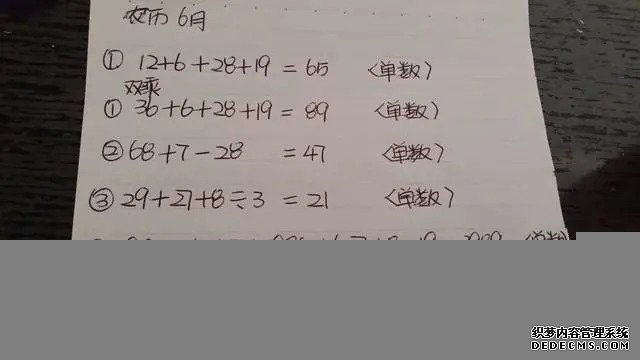 农历6月
① 12+6+28+19 = 65 〈单数〉
双乘
① 36+6+28+19 = 89 〈单数〉
② 68+7-28 = 47 〈单数〉
③ 29+27+8÷3 = 21 〈单数〉
织梦内容管理系统
DEDECMS.COM